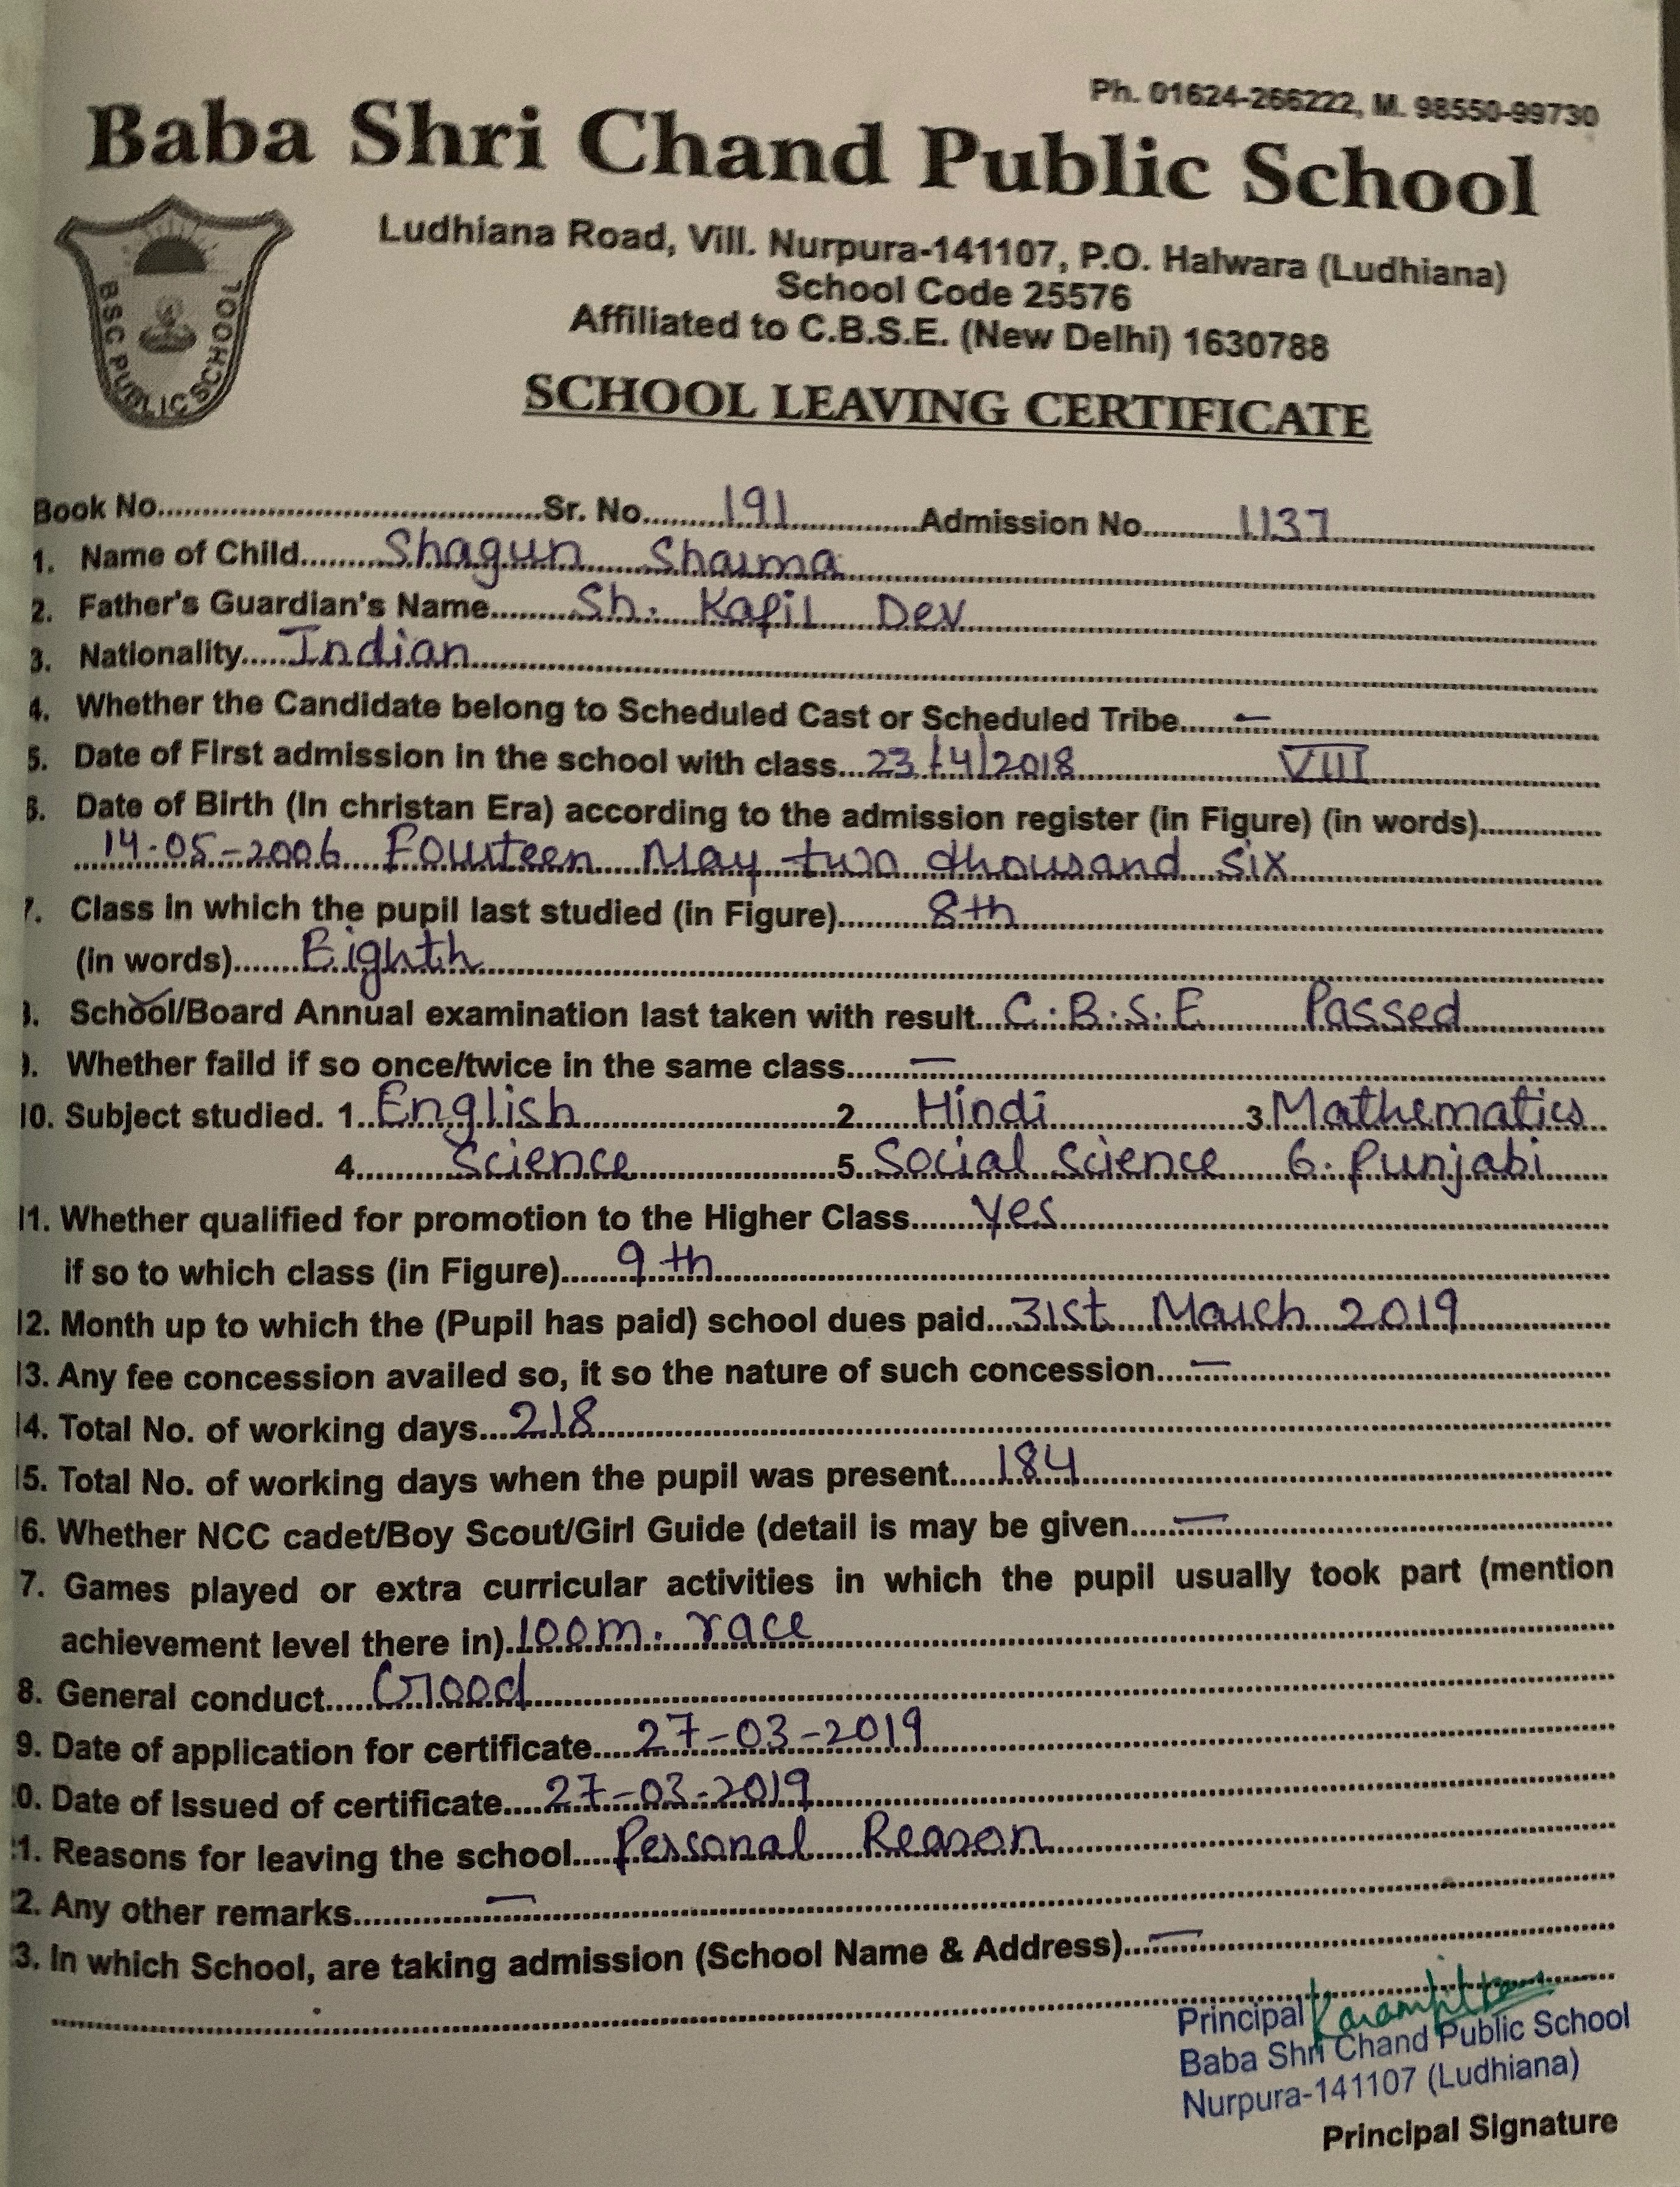 Ph. 01624-266222, M. 98550-99730
Baba Shri Chand Public School
BSC PUBLIC SCHOOL
Ludhiana Road, Vill. Nurpura-141107, P.O. Halwara (Ludhiana)
School Code 25576
Affiliated to C.B.S.E. (New Delhi) 1630788
SCHOOL LEAVING CERTIFICATE
Book No. Sr. No. 191 Admission No. 1137
1. Name of Child Shagun Sharma
2. Father's Guardian's Name Sh. Kapil Dev
3. Nationality Indian
4. Whether the Candidate belong to Scheduled Cast or Scheduled Tribe —
5. Date of First admission in the school with class 23/4/2018 VIII
6. Date of Birth (In christan Era) according to the admission register (in Figure) (in words)
14-05-2006 Fourteen May two thousand six
7. Class in which the pupil last studied (in Figure) 8th
(in words) Eighth
8. School/Board Annual examination last taken with result C.B.S.E Passed
9. Whether faild if so once/twice in the same class —
10. Subject studied. 1. English 2. Hindi 3. Mathematics
4. Science 5. Social Science 6. Punjabi
11. Whether qualified for promotion to the Higher Class Yes
if so to which class (in Figure) 9th
12. Month up to which the (Pupil has paid) school dues paid 31st March 2019
13. Any fee concession availed so, it so the nature of such concession —
14. Total No. of working days 218
15. Total No. of working days when the pupil was present 184
16. Whether NCC cadet/Boy Scout/Girl Guide (detail is may be given —
7. Games played or extra curricular activities in which the pupil usually took part (mention
achievement level there in) 100m. race
8. General conduct Good
9. Date of application for certificate 27-03-2019
0. Date of Issued of certificate 27-03-2019
1. Reasons for leaving the school Personal Reason
2. Any other remarks —
3. In which School, are taking admission (School Name & Address) —
Principal
Baba Shri Chand Public School
Nurpura-141107 (Ludhiana)
Principal Signature